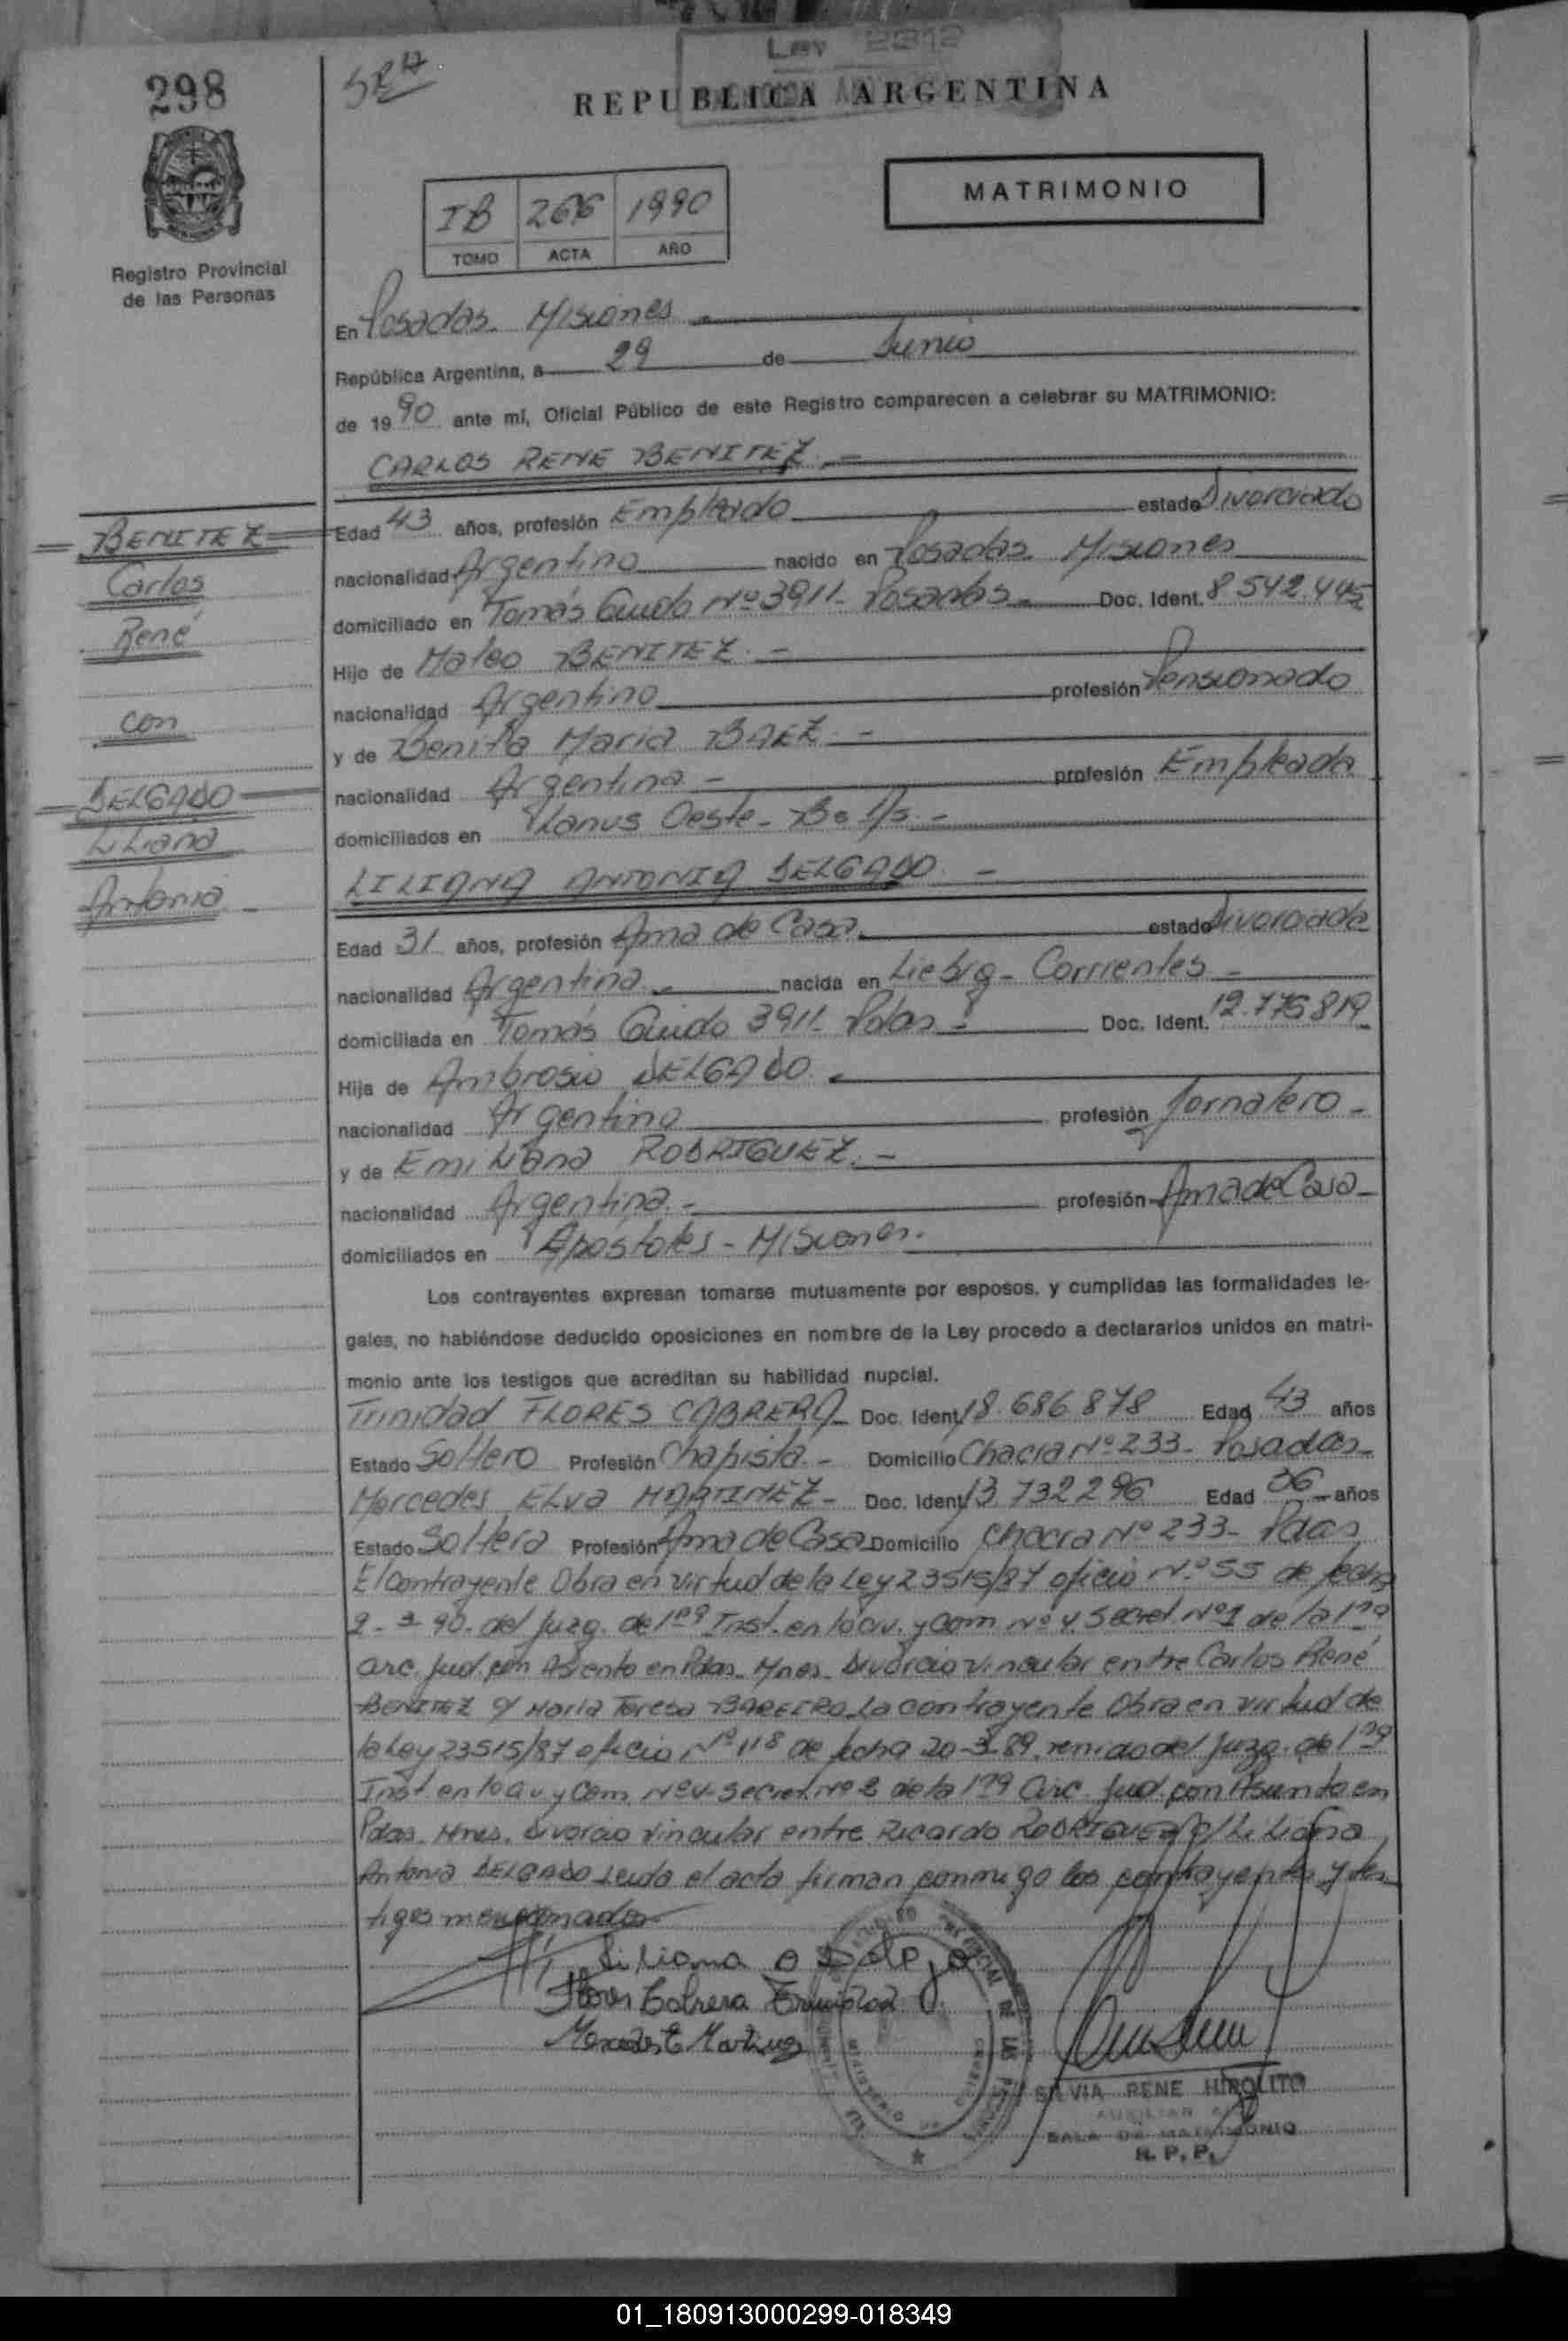 Ley 2312
298
SRA
REPUBLICA ARGENTINA
MATRIMONIO
IB 266 1990
TOMO ACTA AÑO
Registro Provincial
de las Personas
En Posadas Misiones
República Argentina, a 29 de Junio
de 1990 ante mí, Oficial Público de este Registro comparecen a celebrar su MATRIMONIO:
CARLOS RENE BENITEZ
BENITEZ
Carlos
René
con
DELGADO
Liliana
Antonia
Edad 43 años, profesión Empleado estado Divorciado
nacionalidad Argentino nacido en Posadas Misiones
domiciliado en Tomás Guido Nº 3911 - Posadas Doc. Ident. 8 542.445
Hijo de Mateo BENITEZ
nacionalidad Argentino profesión Pensionado
y de Benita Maria BAEZ
nacionalidad Argentina profesión Empleada
domiciliados en Lanus Oeste - Bs As
LILIANA ANTONIA DELGADO
Edad 31 años, profesión Ama de Casa estado Divorciada
nacionalidad Argentina nacida en Liebig - Corrientes
domiciliada en Tomás Guido 3911 Pdas Doc. Ident. 12.775 819
Hija de Ambrosio DELGADO
nacionalidad Argentino profesión Jornalero
y de Emiliana RODRIGUEZ
nacionalidad Argentina profesión Ama de Casa
domiciliados en Apostoles - Misiones
Los contrayentes expresan tomarse mutuamente por esposos, y cumplidas las formalidades le-
gales, no habiéndose deducido oposiciones en nombre de la Ley procedo a declararlos unidos en matri-
monio ante los testigos que acreditan su habilidad nupcial.
Trinidad FLORES CABRERA Doc. Ident. 18.686 878 Edad 43 años
Estado Soltero Profesión Chapista Domicilio Chacra Nº 233 - Posadas
Mercedes Elva MARTINEZ Doc. Ident. 13 732 296 Edad 36 años
Estado Soltera Profesión Ama de Casa Domicilio Chacra Nº 233 - Pdas
El contrayente Obra en virtud de la Ley 23515/87 oficio Nº 55 de fecha
2-3-90. del Juzg. de 1ra Inst. en lo civ. y Com Nº 4. Secret. Nº 1 de la 1ra
circ. Jud. con Asiento en Pdas. Mnes. Divorcio Vincular entre Carlos René
BENITEZ c/ Maria Teresa BAREIRO La contrayente Obra en virtud de
la Ley 23515/87 oficio Nº 118 de fecha 20-3-89. venido del Juzg. de 1ra
Inst en lo civ y Com Nº 4 - Secret. Nº 2 de la 1ra Circ. Jud. con Asiento en
Pdas. Mnes. Divorcio Vincular entre Ricardo RODRIGUEZ c/ Liliana
Antonia DELGADO Leida el acta firman conmigo los contrayentes y tes-
tigos mencionados
Liliana A Delgado
Flores Cabrera Trinidad
Mercedes E Martinez
SILVIA RENE HIPOLITO
AUXILIAR
SALA DE MATRIMONIO
R. P. P.
01_180913000299-018349